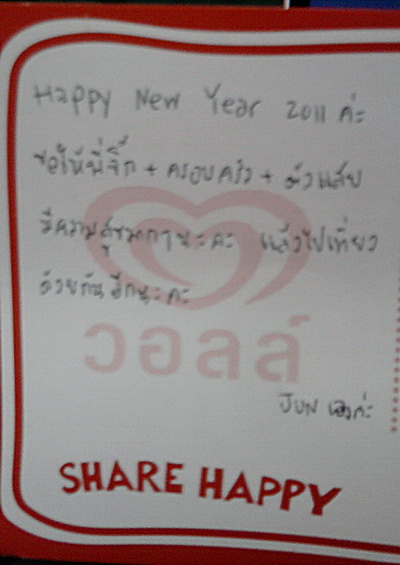 Happy New Year 2011 ค่ะ
ขอให้พี่จิ๊ก + ครอบครัว + ตัวแสบ
มีความสุขมากๆนะคะ แล้วไปเที่ยว
ด้วยกันอีกนะคะ
วอลล์
JUN เองค่ะ
SHARE HAPPY